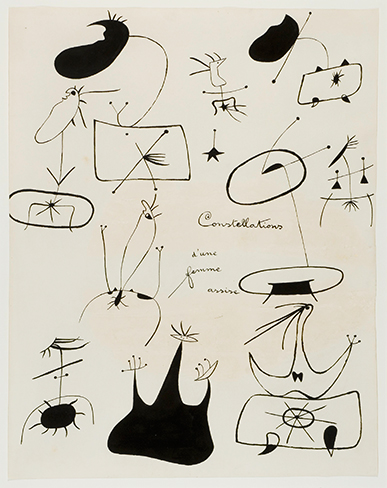 @Constellations
d'une
femme
assise